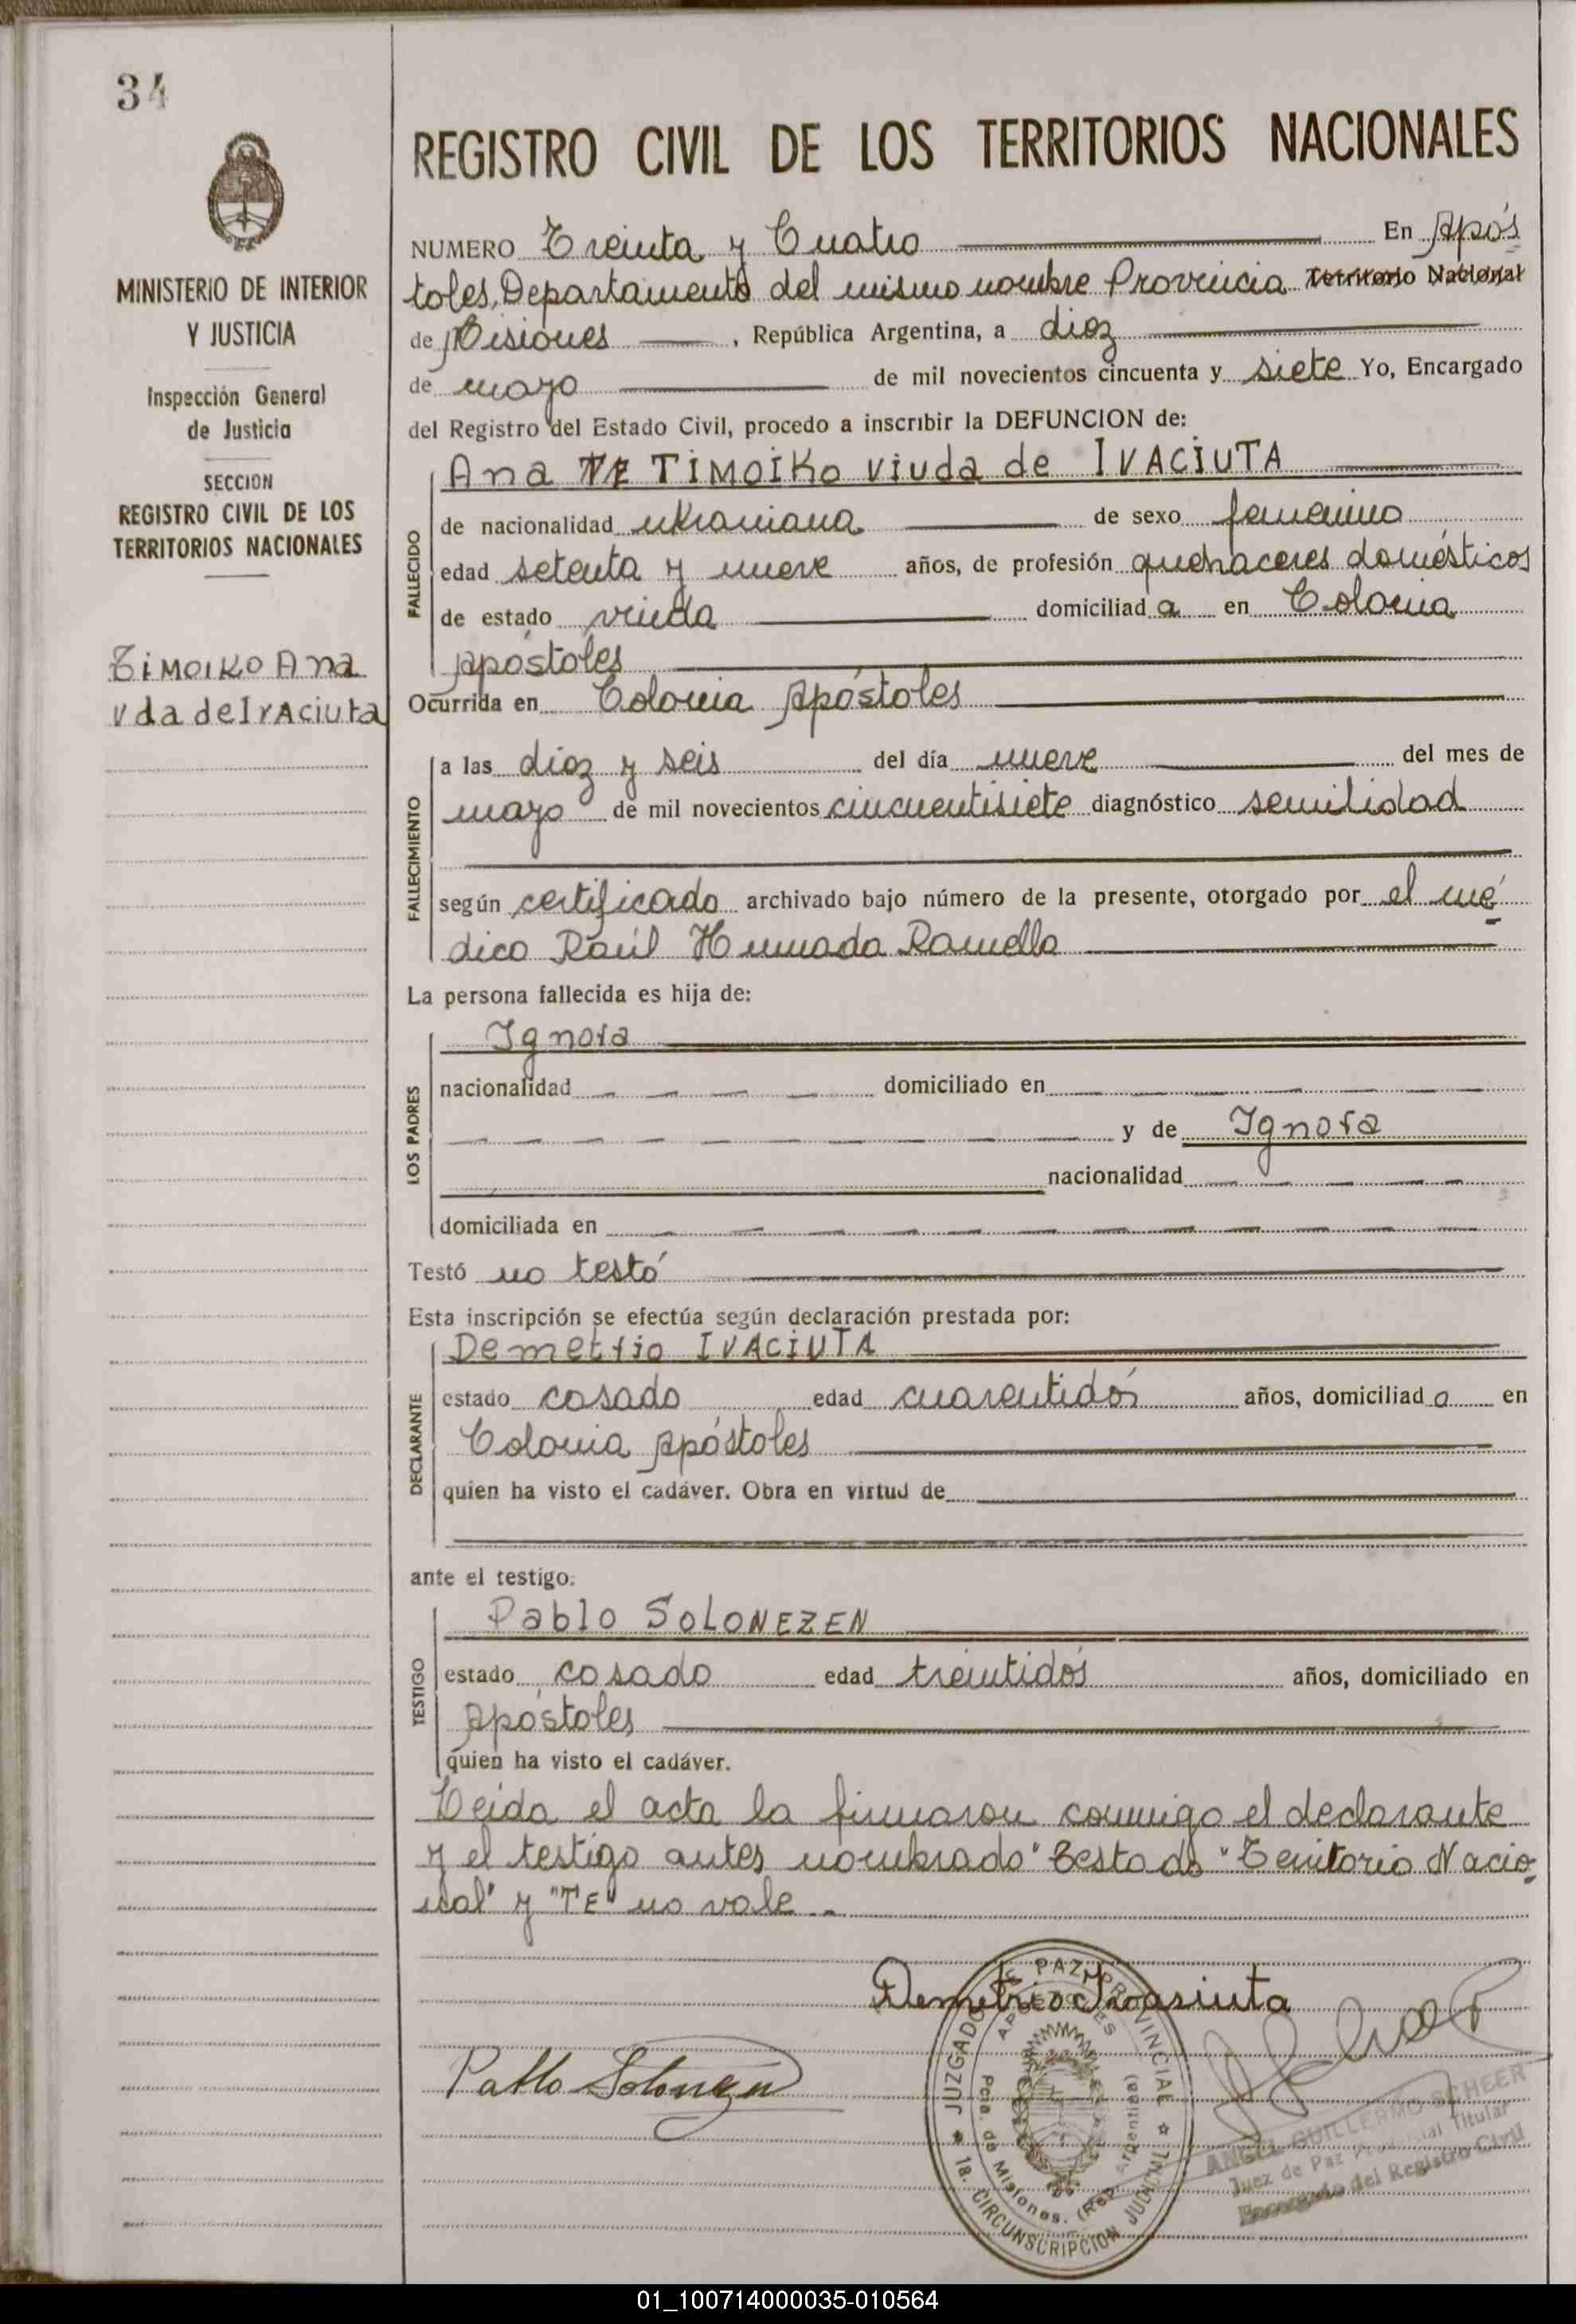 34
REGISTRO CIVIL DE LOS TERRITORIOS NACIONALES
MINISTERIO DE INTERIOR
Y JUSTICIA
Inspección General
de Justicia
SECCION
REGISTRO CIVIL DE LOS
TERRITORIOS NACIONALES
TiMOIKO Ana
vda de IvAciuta
NUMERO Treinta y Cuatro En Após
toles, Departamento del mismo nombre Provincia Territorio Nacional
de Misiones, República Argentina, a diez
de mayo de mil novecientos cincuenta y siete Yo, Encargado
del Registro del Estado Civil, procedo a inscribir la DEFUNCION de:
FALLECIDO
Ana TE TiMOiKo viuda de IVACiUTA
de nacionalidad ukraniana de sexo femenino
edad setenta y nueve años, de profesión quehaceres domésticos
de estado viuda domiciliad a en Colonia
Apóstoles
Ocurrida en Colonia Apóstoles
FALLECIMIENTO
a las diez y seis del día nueve del mes de
mayo de mil novecientos cincuentisiete diagnóstico senilidad
según certificado archivado bajo número de la presente, otorgado por el mé
dico Raúl Humada Ramella
La persona fallecida es hija de:
LOS PADRES
Ignora
nacionalidad domiciliado en
y de Ignora
nacionalidad
domiciliada en
Testó no testó
Esta inscripción se efectúa según declaración prestada por:
DECLARANTE
Demetrio IVACiUTA
estado casado edad cuarentidós años, domiciliad o en
Colonia Apóstoles
quien ha visto el cadáver. Obra en virtud de
ante el testigo:
TESTIGO
Pablo SOLONEZEN
estado casado edad treintidós años, domiciliado en
Apóstoles
quien ha visto el cadáver.
Leída el acta la firmaron conmigo el declarante
y el testigo antes nombrado "Testado "Territorio Nacio-
nal" y "TE" no vale.-
Demetrio Ivasiuta
Pablo Solonezen
JUZGADO DE PAZ PROVINCIAL
APOSTOLES
Pcia. de Misiones. (Rep. Argentina)
1a. CIRCUNSCRIPCION JUDICIAL
ANGEL GUILLERMO SCHEER
Juez de Paz Provincial Titular
Encargado del Registro Civil
01_100714000035-010564